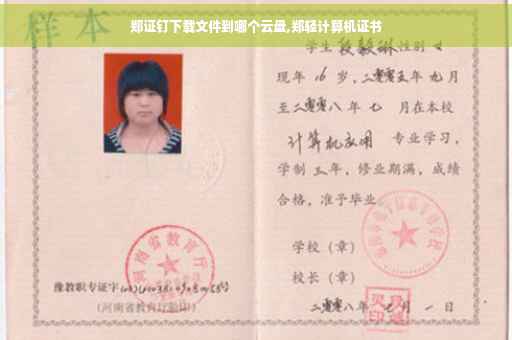 郑证钉下载文件到哪个云最,郑轻计算机证书
样本
学生 段毅琳 性别 女
现年 16 岁,二零零五年 九 月
至二零零八年 七 月在本校
计算机应用 专业学习,
学制 三 年,修业期满,成绩
合格,准予毕业
学校(章)
校长(章)
二零零八年 七 月 一 日
河南省教育厅
豫教职专证字
(河南省教育厅验印)